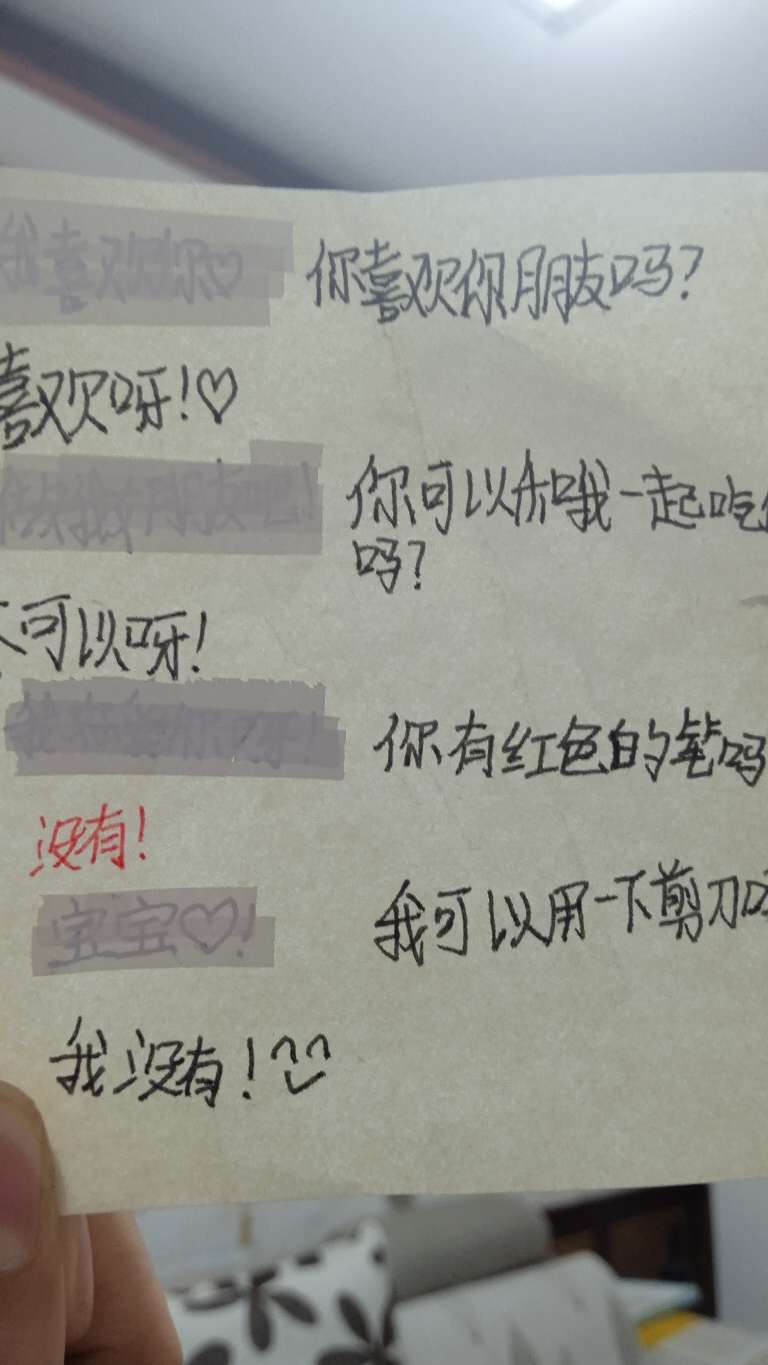 我喜欢你♡ 你喜欢你朋友吗?
喜欢呀!♡
做我朋友吧! 你可以和我一起吃
吗?
不可以呀!
你有红色的笔吗
没有!
宝宝♡! 我可以用一下剪刀
我没有!